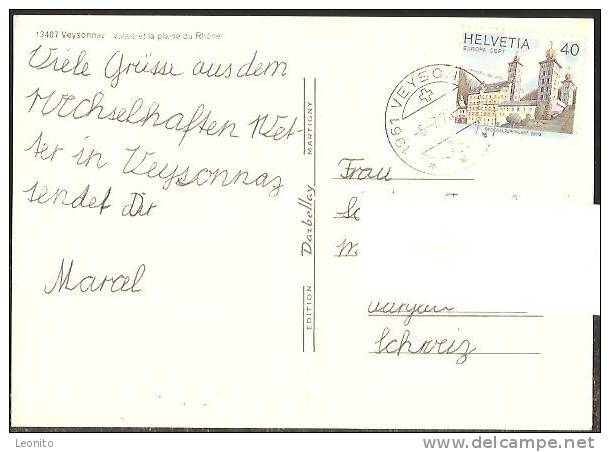 13407 Veysonnaz Valais et la plaine du Rhône
Viele Grüsse aus dem
Wechselhaften Wet-
ter in Veysonnaz
sendet Dir
Marcel
EDITION Darbellay MARTIGNY
HELVETIA 40
EUROPA CEPT
1961 VEYSO
Frau
Schweiz
Leonito
delcampe.net